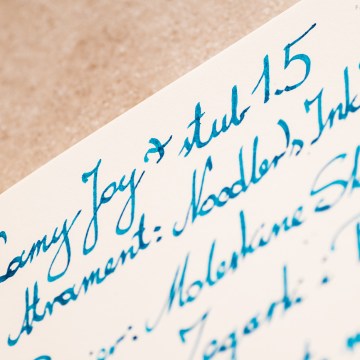 Lamy Joy & stub 1.5
Atrament: Noodler's Ink
Moleskine
Zegarki: